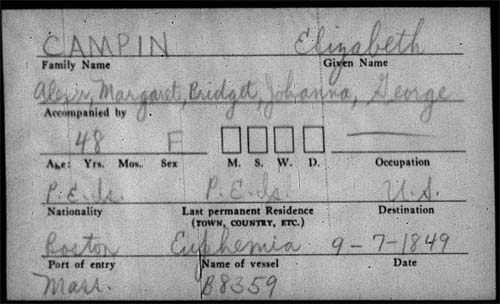 CAMPIN Elizabeth
Family Name Given Name
Alex'r, Margaret, Bridget, Johanna, George
Accompanied by
48 F
Age: Yrs. Mos. Sex M. S. W. D. Occupation
P.E.Is. P.E.Is. U.S.
Nationality Last permanent Residence Destination
(TOWN, COUNTRY, ETC.)
Boston Euphemia 9-7-1849
Port of entry Name of vessel Date
Mass. B8359